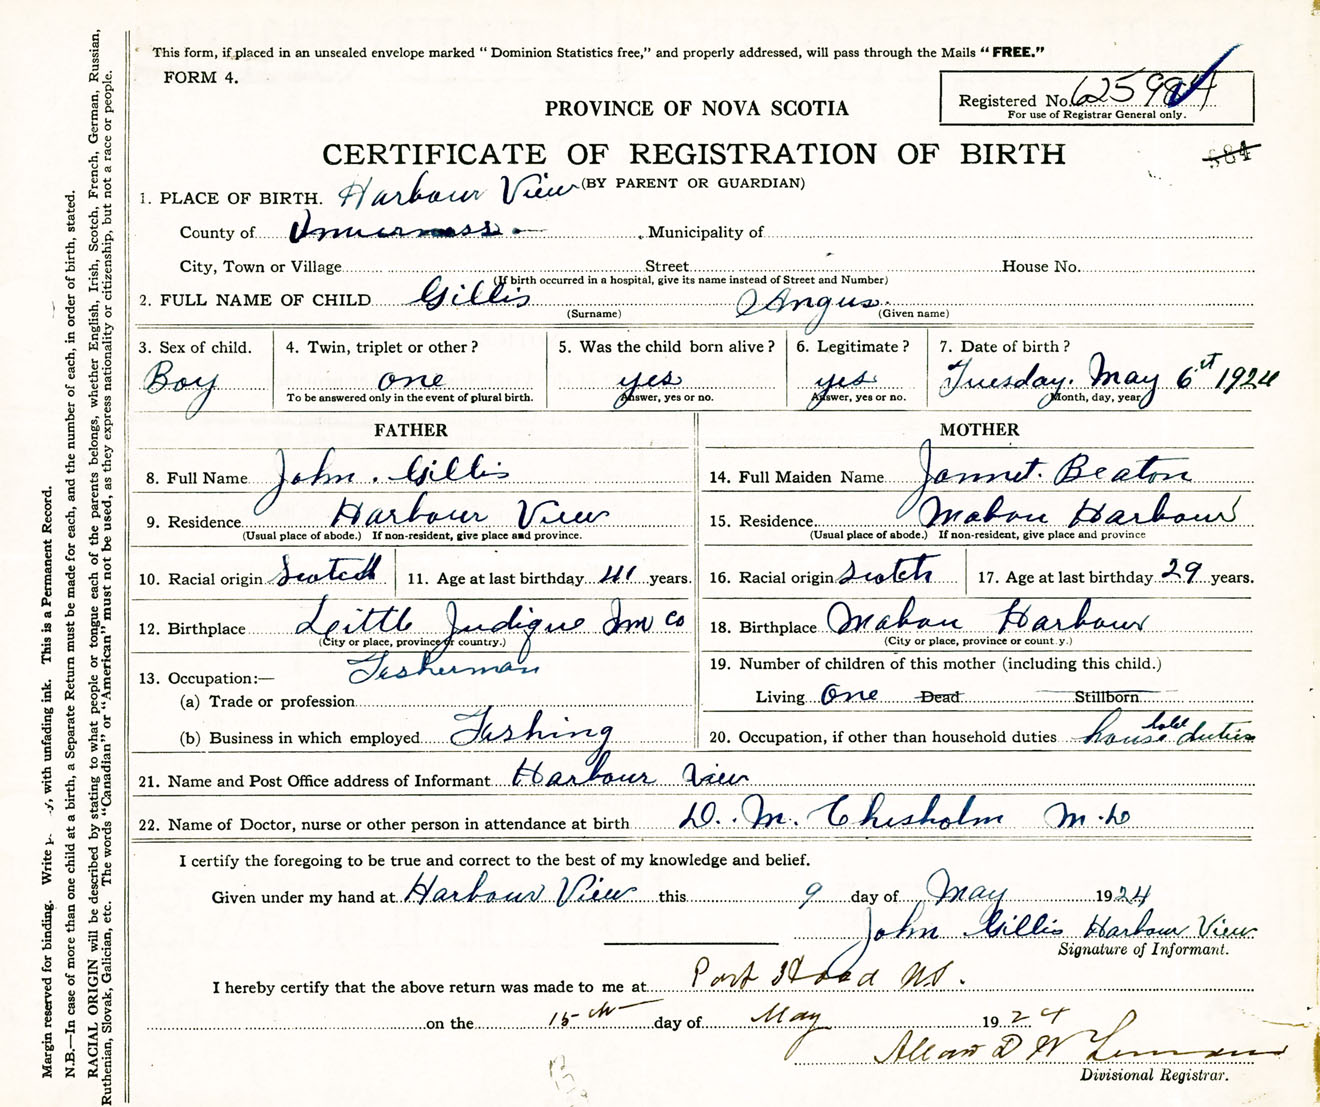 This form, if placed in an unsealed envelope marked “ Dominion Statistics free,” and properly addressed, will pass through the Mails “ FREE.”
FORM 4.
Registered No. 62598
For use of Registrar General only.
PROVINCE OF NOVA SCOTIA
CERTIFICATE OF REGISTRATION OF BIRTH
884
(BY PARENT OR GUARDIAN)
1. PLACE OF BIRTH. Harbour View
County of Inverness Municipality of
City, Town or Village Street House No.
(If birth occurred in a hospital, give its name instead of Street and Number)
2. FULL NAME OF CHILD Gillis Angus.
(Surname) (Given name)
3. Sex of child. 4. Twin, triplet or other ? 5. Was the child born alive ? 6. Legitimate ? 7. Date of birth ?
Boy one yes yes Tuesday. May 6st 1924
To be answered only in the event of plural birth. Answer, yes or no. Answer, yes or no. Month, day, year
FATHER MOTHER
8. Full Name John . Gillis 14. Full Maiden Name Jannet. Beaton
9. Residence Harbour View 15. Residence. Mabou Harbour
(Usual place of abode.) If non-resident, give place and province. (Usual place of abode.) If non-resident, give place and province
10. Racial origin Scotch 11. Age at last birthday 41 years. 16. Racial origin Scotch 17. Age at last birthday 29 years.
12. Birthplace Little Judique Inv Co 18. Birthplace Mabou Harbour
(City or place, province or country.) (City or place, province or count y.)
13. Occupation:— Fisherman 19. Number of children of this mother (including this child.)
(a) Trade or profession Living One Dead Stillborn
(b) Business in which employed Fishing 20. Occupation, if other than household duties house hold duties
21. Name and Post Office address of Informant Harbour View
22. Name of Doctor, nurse or other person in attendance at birth D. M. Chisholm M.D
I certify the foregoing to be true and correct to the best of my knowledge and belief.
Given under my hand at Harbour View this 9 day of May 1924
John Gillis Harbour View
Signature of Informant.
I hereby certify that the above return was made to me at Port Hood N.S.
on the 15th day of May 1924
Divisional Registrar.
Margin reserved for binding. Write with unfading ink. This is a Permanent Record.
N.B.—In case of more than one child at a birth, a Separate Return must be made for each, and the number of each, in order of birth, stated.
RACIAL ORIGIN will be described by stating to what people or tongue each of the parents belongs, whether English, Irish, Scotch, French, German, Russian,
Ruthenian, Slovak, Galician, etc. The words “Canadian” or “American” must not be used, as they express nationality or citizenship, but not a race or people.